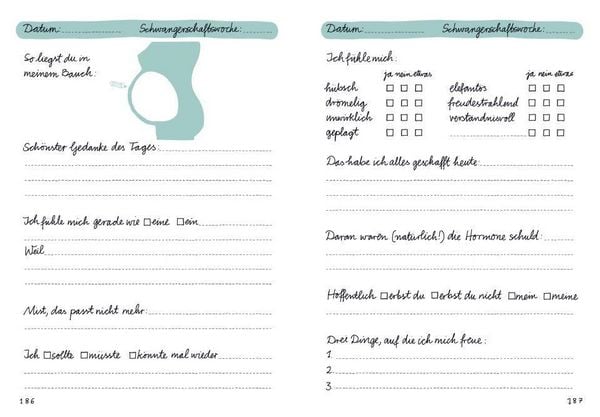 Datum: Schwangerschaftswoche:
So liegst du in
meinem Bauch:
Schönster Gedanke des Tages:
Ich fühle mich gerade wie □ eine □ ein
Weil
Mist, das passt nicht mehr:
Ich □ sollte □ müsste □ könnte mal wieder
186
Datum: Schwangerschaftswoche:
Ich fühle mich:
ja nein etwas ja nein etwas
hübsch □ □ □ elefantös □ □ □
drömelig □ □ □ freudestrahlend □ □ □
unwirklich □ □ □ verständnisvoll □ □ □
geplagt □ □ □ □ □ □
Das habe ich alles geschafft heute:
Daran waren (natürlich!) die Hormone schuld:
Hoffentlich □ erbst du □ erbst du nicht □ mein □ meine
Drei Dinge, auf die ich mich freue:
1.
2.
3.
187